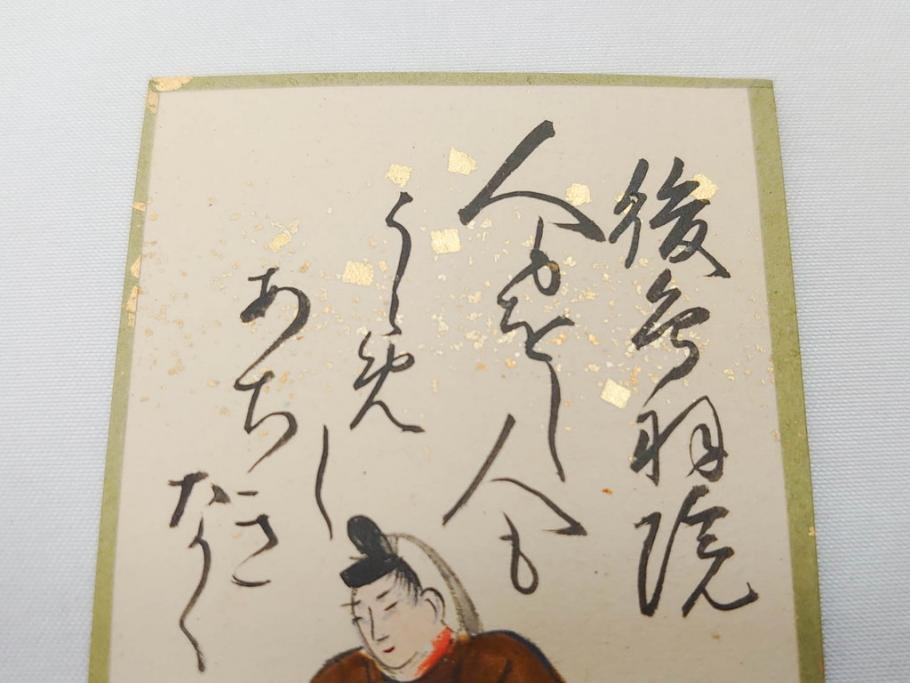 後鳥羽院
人もをし人も
うらめし
あちき
なく